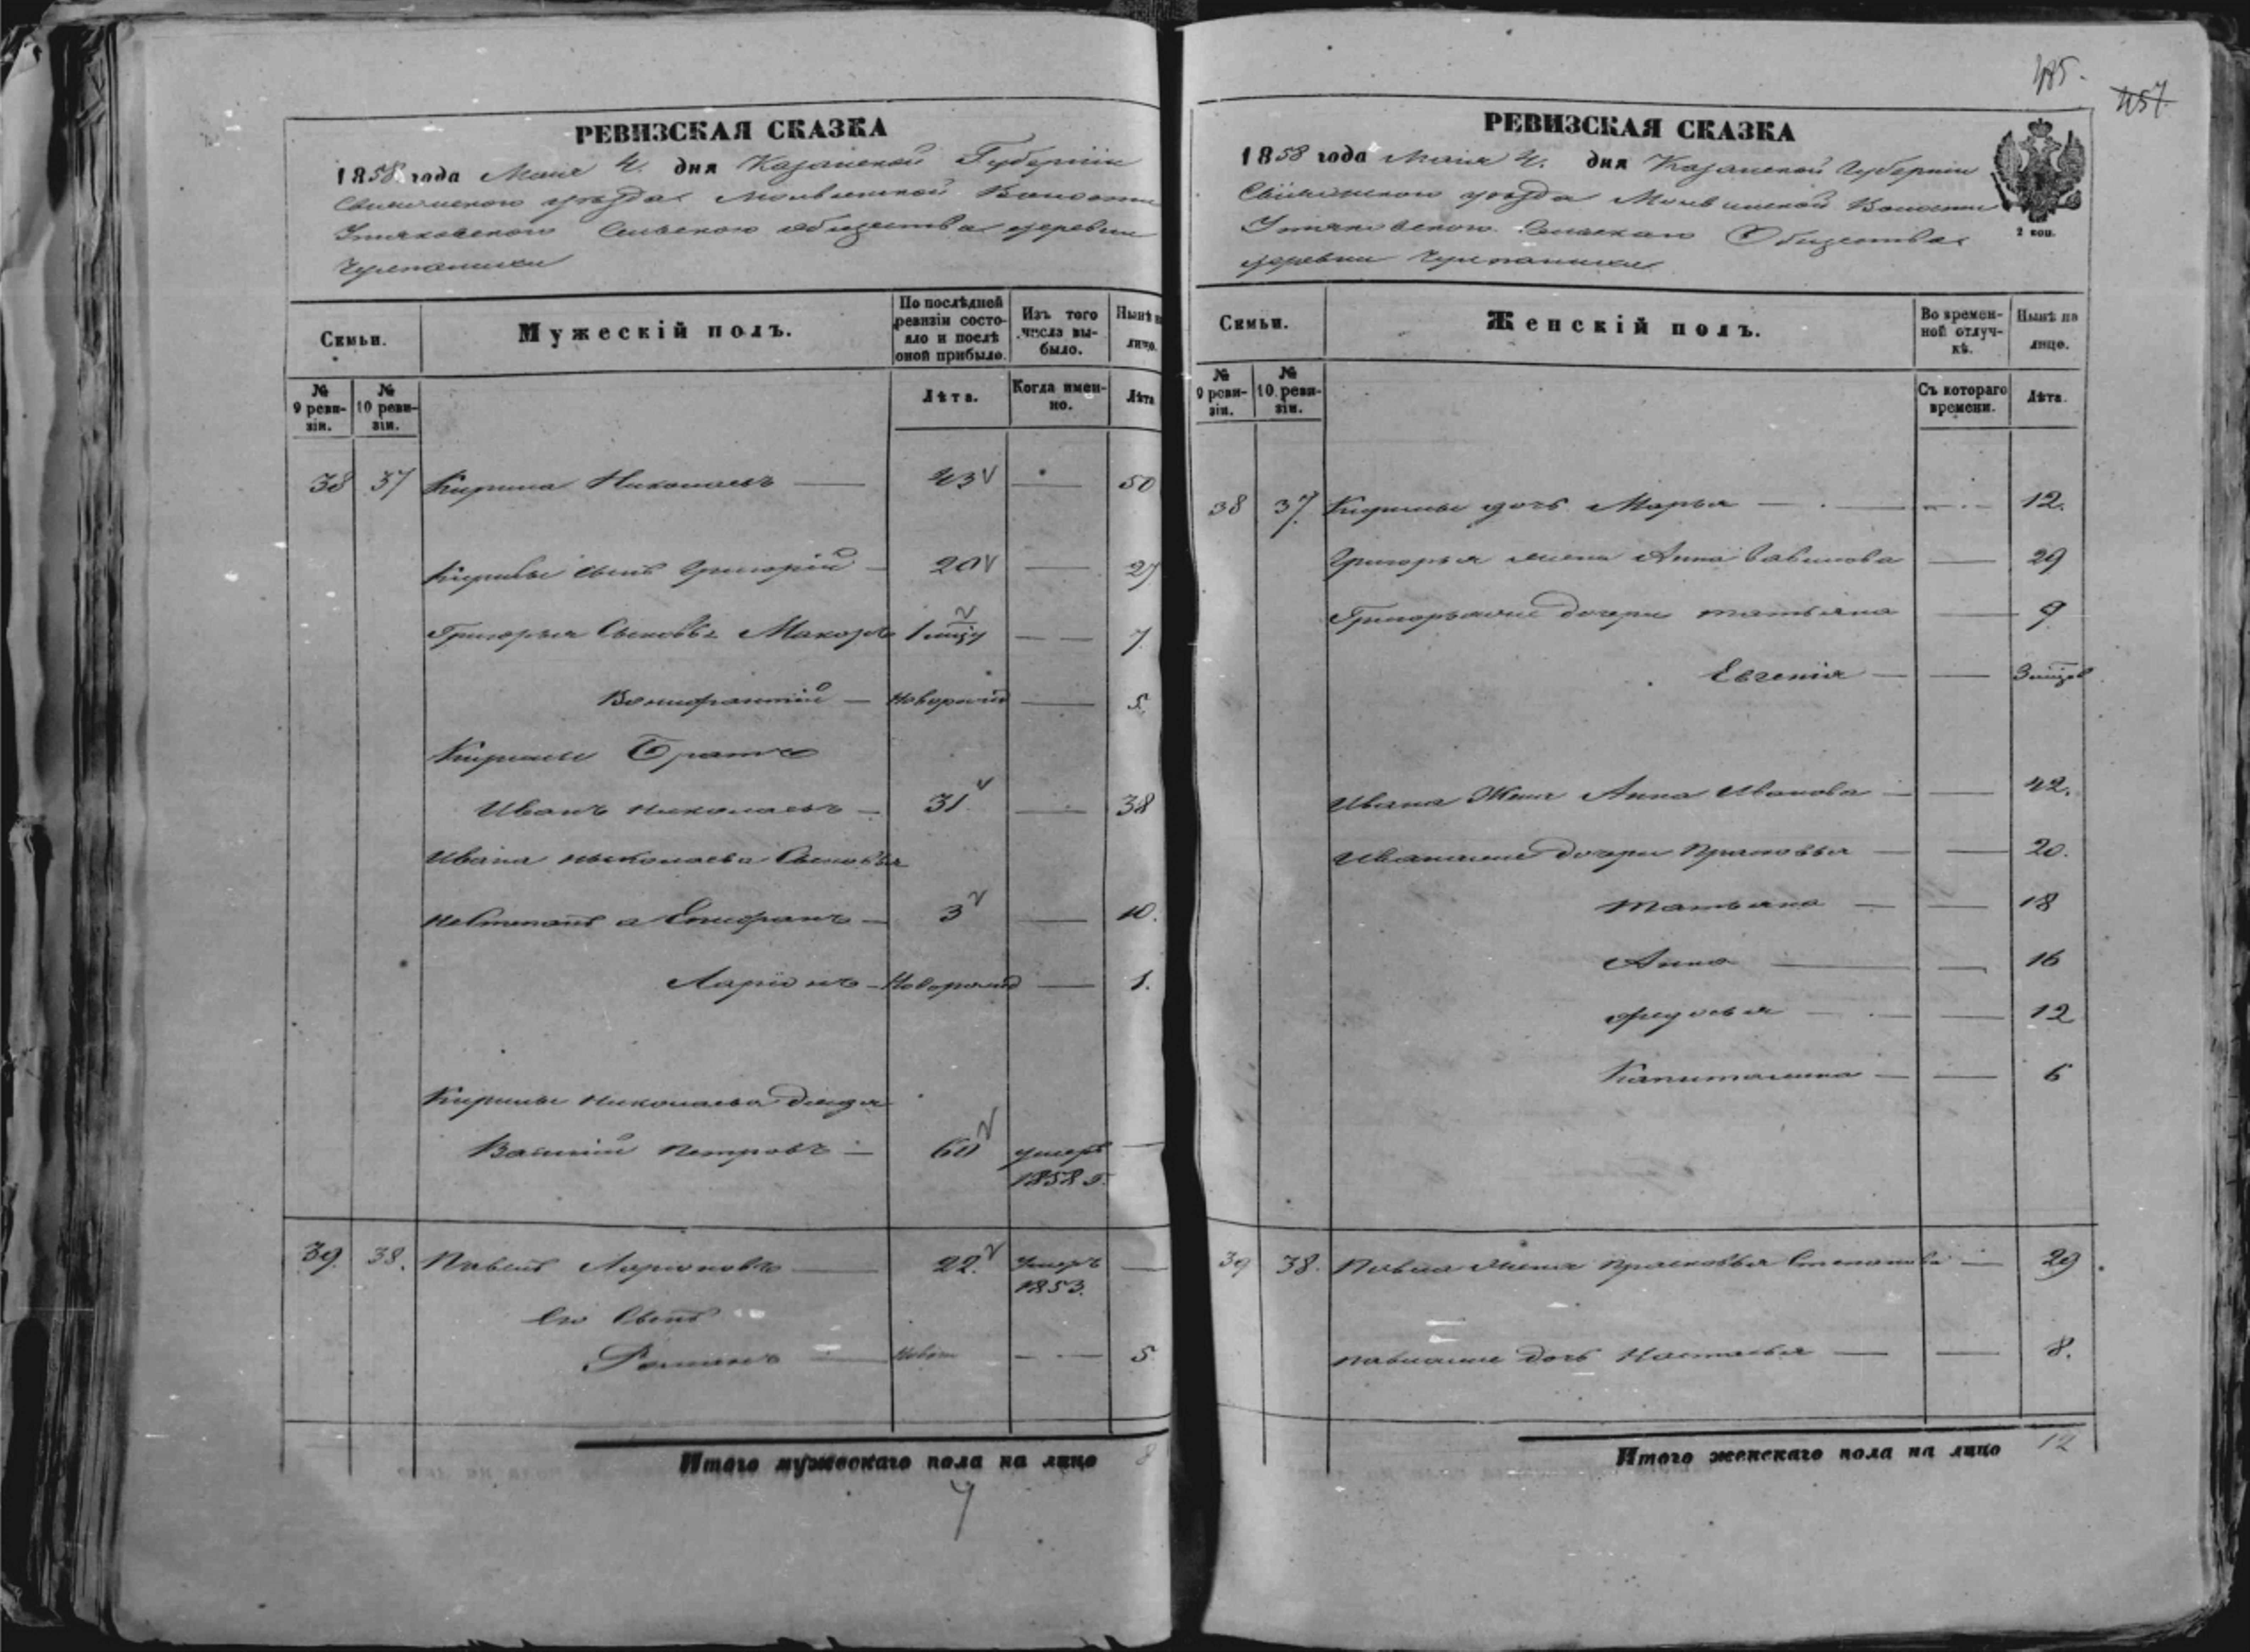 РЕВИЗСКАЯ СКАЗКА
1858 года Мая 4. дня Казанской Губернии
Свияжского уѣзда Молвинской Волости
Утяковского Сельского общества деревни
Семьи.
Мужескій полъ.
По послѣдней ревизіи состояло и послѣ оной прибыло.
Изъ того числа выбыло.
Нынѣ на лицо.
№ 9 ревизіи.
№ 10 ревизіи.
Лѣта.
Когда именно.
Лѣта
38 37 Кирила Николаевъ 43 50
Кирилы сынъ Григорій 20 27
Григорья Сыновья Макаръ 1 7
Вонифантій Новорожд 5.
Кирилы Братъ
Иванъ Николаевъ 31 38
Ивана Николаева Сыновья
не Степанъ а Епифанъ 3 10.
Ларіонъ Новорожд 1.
Кирилы Николаева дядя
Василій Петровъ 60 умеръ
1858 г.
39. 38. Павелъ Ларионовъ 22. Умеръ
1853.
Его Сынъ
Романъ Новор 5
Итого мужескаго пола на лицо 8
7
485.
457.
РЕВИЗСКАЯ СКАЗКА
1858 года Мая 4. дня Казанской Губернии
Свияжского уѣзда Молвинской Волости
Утяковского Сельскаго Общества
деревни
2 коп.
Семьи.
Женскій полъ.
Во временной отлучкѣ.
Нынѣ на лицо.
№ 9 ревизіи.
№ 10 ревизіи.
Съ котораго времени.
Лѣта.
38 37. Кирилы дочь Марья 12.
Григорья жена Анна Вавилова 29
Григорьевы дочери Татьяна 9
Евгенія 3
Ивана Жена Анна Иванова 42.
Ивановы дочери Прасковья 20.
Татьяна 18
Анна 16
Федосья 12
Капиталина 6
39 38. Павла Жена Прасковья Степанова 29
дочь Настасья 8.
Итого женскаго пола на лицо 12